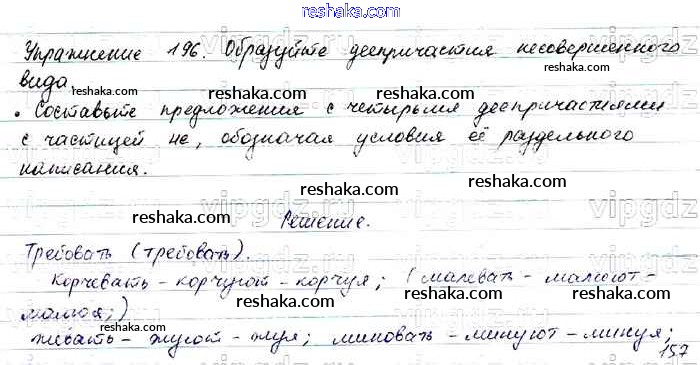 reshaka.com
Упражнение 196. Образуйте деепричастия несовершенного
reshaka.com
вида
reshaka.com
• Составьте предложения с четырьмя деепричастиями
reshaka.com
с частицей не, обозначая условия её раздельного
reshaka.com
написания.
reshaka.com reshaka.com
Решение.
reshaka.com
Требовать (требовать).
reshaka.com
Корчевать - корчуют - корчуя; (малевать - малюют -
reshaka.com reshaka.com
малюя;)
reshaka.com
жевать - жуют - жуя; миновать - минуют - минуя;
reshaka.com
157